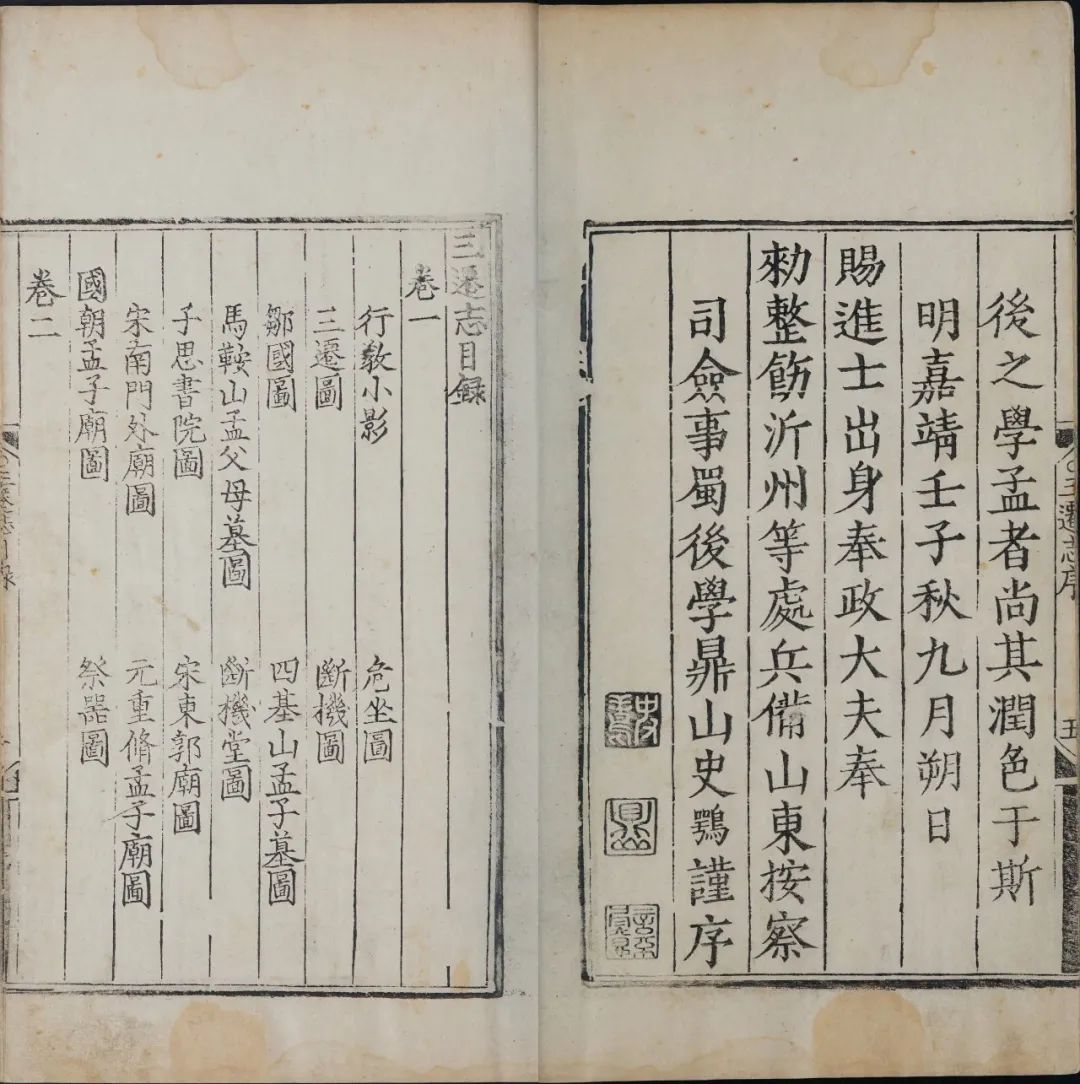 後之學孟者尚其潤色于斯
明嘉靖壬子秋九月朔日
賜進士出身奉政大夫奉
勑整飭沂州等處兵備山東按察
司僉事蜀後學鼎山史鶚謹序
三遷志序
五
三遷志目録
卷一
行教小影 危坐圖
三遷圖 斷機圖
鄒國圖 四基山孟子墓圖
馬鞍山孟父母墓圖 斷機堂圖
子思書院圖 宋東郭廟圖
宋南門外廟圖 元重脩孟子廟圖
國朝孟子廟圖 祭器圖
卷二